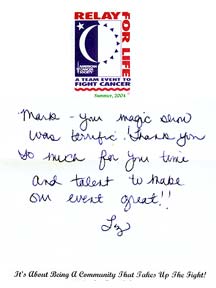 RELAY
FOR LIFE
AMERICAN
CANCER
SOCIETY
A TEAM EVENT TO
FIGHT CANCER
Summer, 2004
Mark - you magic show
was terrific! Thank you
so much for you time
and talent to make
our event great!!
Liz
It's About Being A Community That Takes Up The Fight!